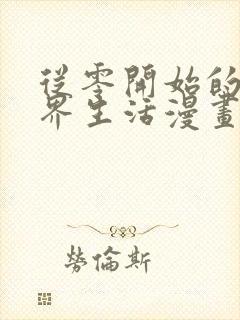 從零開始的
界生活漫畫
勞倫斯